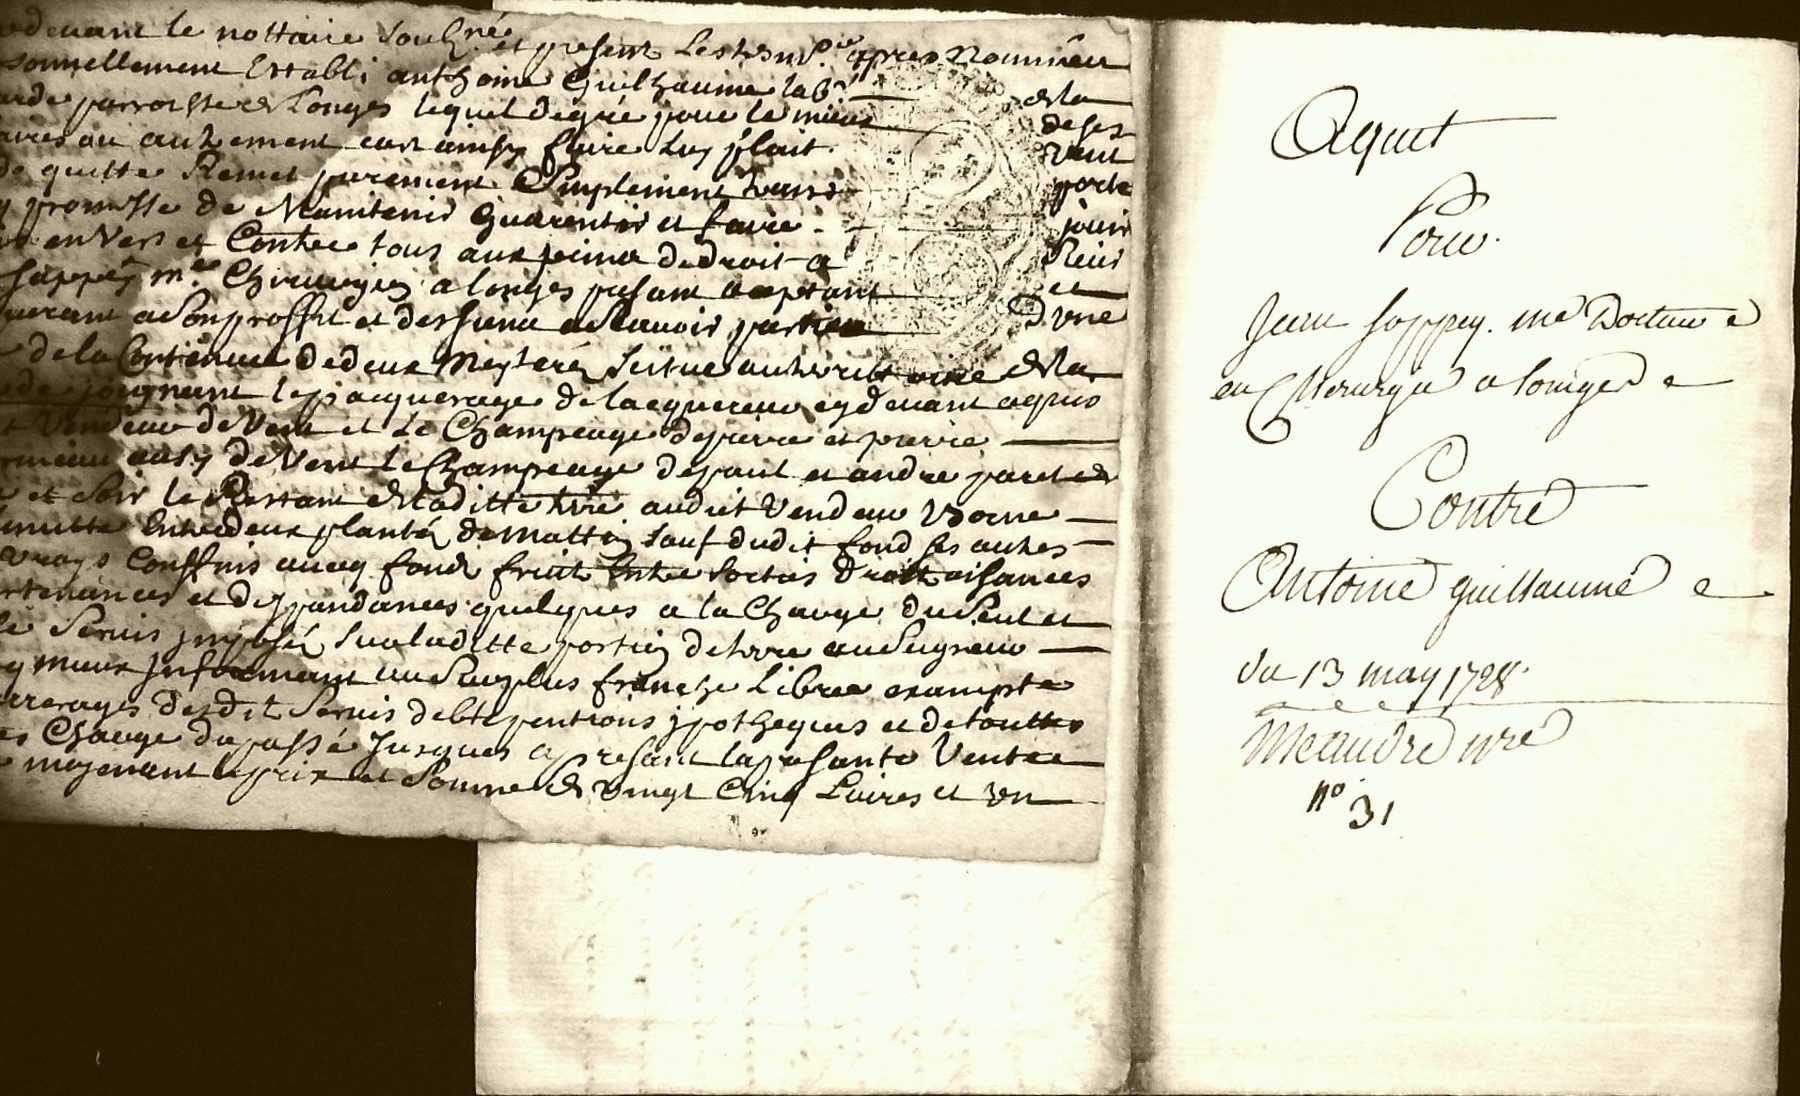 devant le nottaire Soubzné et present Les tesm.ᵗ apres Nommeu
sonnellement Establi anthoine Guilhaume lab.ʳ de la
parroisse de Longes lequel de gré pour le mieux de ses
aires ou autrement car ainsy faire Luy plait vent
de quitte Remet purement Simplement porte
promesse de Maintenir Guarentir et faire jouir
envers et Contre tous aux peine de droit a Sieur
Sappey m.ᵉ Chirurgien a Longes present acceptant et
a Son proffit et des siens a Scavoir partien D'vne
de la Contenue de deux Meyterés Scitue de la
de joignant le pacquerage de lacquereur cy devant acquis
Vendeur de Vent et Le Champeage de pierre et pierre
aussy de Vent le Champeage de paul et andre
et Soir le Restant de laditte tere audit Vendeur Borne
limitte Entredeux planté de Mattin Sauf dudit fond ses autres
vrays Conffins avecq fondz fruit Entree Sorties droit aisances
et deppandances quelques a la Charge du Seul et
Servis jmposés Sur laditte portion de terre au Seigneur
mieux jnformant au Surplus franche Libree exampte
arrerages dudit Servis debte pentions jpotheques et de touttes
Charge du passé Jusques a present la presante Ventee
moyenant le prix et Somme de vingt Cinq Livres et vn
Aquit
Pour
Jean Sappey. me Docteur
en Chirurgie a longes
Contre
Antoine guillaume
du 13 may 1728
Meaudre nre
nº 31